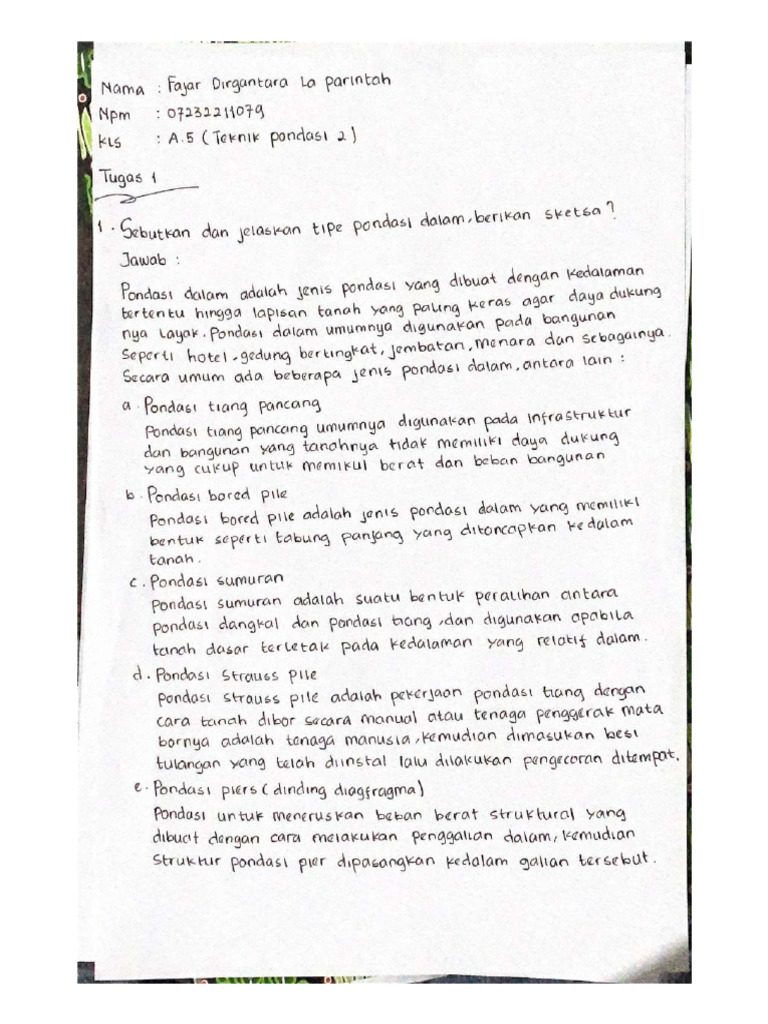 Nama : Fajar Dirgantara La Parintah
Npm : 07232211079
Kls : A.5 (Teknik pondasi 2)
Tugas 1
1. Sebutkan dan jelaskan tipe pondasi dalam, berikan sketsa?
Jawab :
Pondasi dalam adalah jenis pondasi yang dibuat dengan kedalaman
tertentu hingga lapisan tanah yang paling keras agar daya dukung
nya layak. Pondasi dalam umumnya digunakan pada bangunan
seperti hotel, gedung bertingkat, jembatan, menara dan sebagainya.
Secara umum ada beberapa jenis pondasi dalam, antara lain :
a. Pondasi tiang pancang
Pondasi tiang pancang umumnya digunakan pada infrastruktur
dan bangunan yang tanahnya tidak memiliki daya dukung
yang cukup untuk memikul berat dan beban bangunan
b. Pondasi bored pile
Pondasi bored pile adalah jenis pondasi dalam yang memiliki
bentuk seperti tabung panjang yang ditancapkan kedalam
tanah.
c. Pondasi sumuran
Pondasi sumuran adalah suatu bentuk peralihan antara
pondasi dangkal dan pondasi tiang, dan digunakan apabila
tanah dasar terletak pada kedalaman yang relatif dalam.
d. Pondasi Strauss pile
Pondasi strauss pile adalah pekerjaan pondasi tiang dengan
cara tanah dibor secara manual atau tenaga penggerak mata
bornya adalah tenaga manusia, kemudian dimasukan besi
tulangan yang telah diinstal lalu dilakukan pengecoran ditempat.
e. Pondasi piers (dinding diagfragma)
Pondasi untuk meneruskan beban berat struktural yang
dibuat dengan cara melakukan penggalian dalam, kemudian
struktur pondasi pier dipasangkan kedalam galian tersebut.